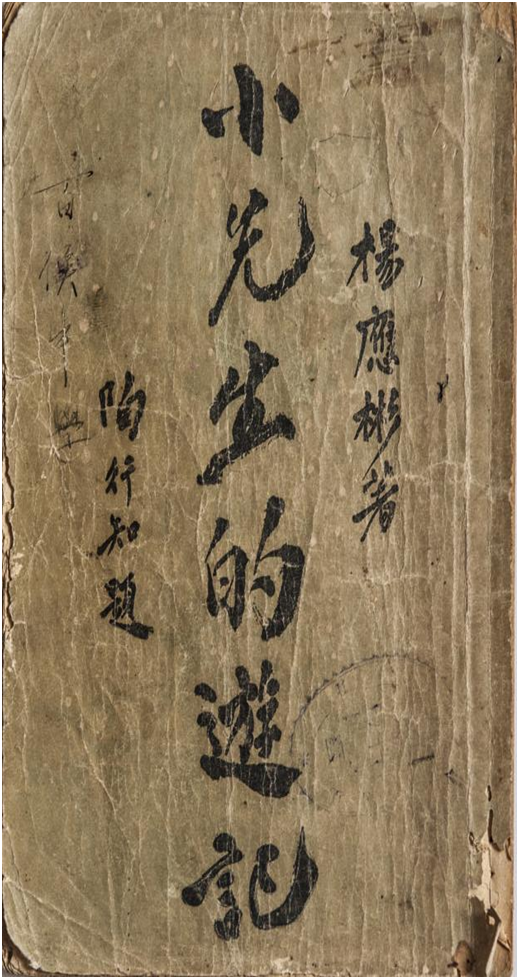 楊應彬著
小先生的遊記
陶行知題